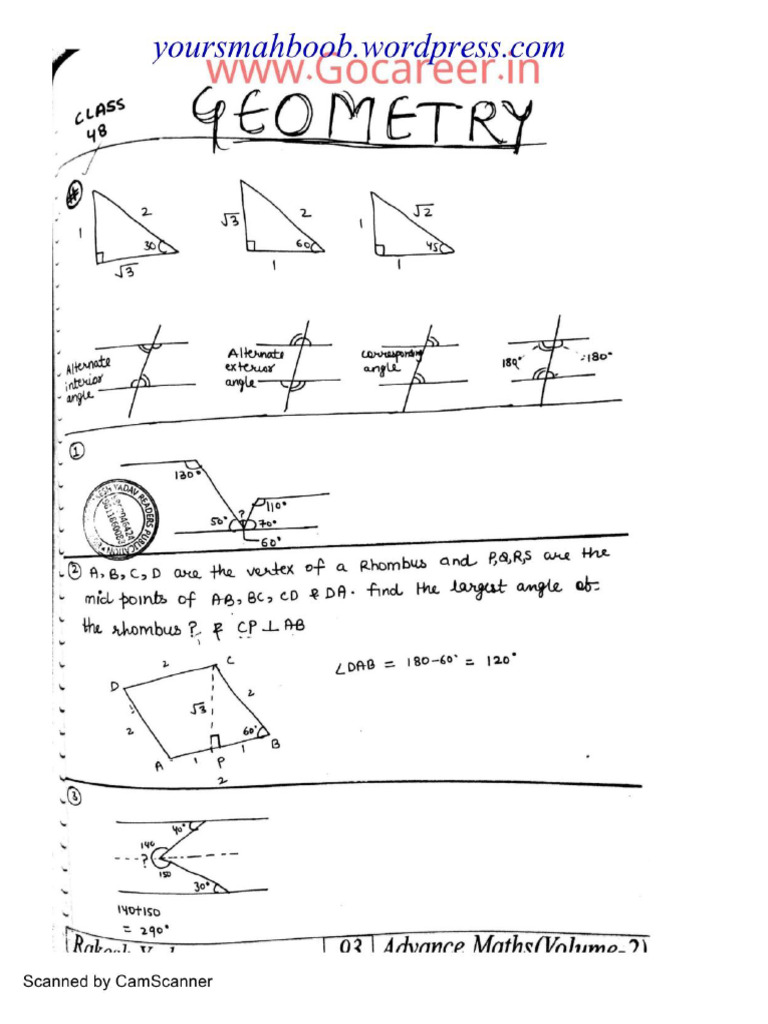 yoursmahboob.wordpress.com
www.Gocareer.in
GEOMETRY
CLASS
48
#
1 2 30 √3
√3 2 60 1
1 √2 45 1
Alternate
interior
angle
Alternate
exterior
angle
corresponding
angle
180° 180°
1
130°
110°
50° ? 70°
60°
2 A, B, C, D are the vertex of a Rhombus and P, Q, R, S are the
mid points of AB, BC, CD & DA. find the largest angle of
the rhombus? & CP ⊥ AB
∠DAB = 180-60° = 120°
2 C
D
√3 2
2
60°
A 1 P 1 B
2
3
40°
140
?
150
30°
140+150
= 290°
93 Advance Maths(Volume-2)
Scanned by CamScanner